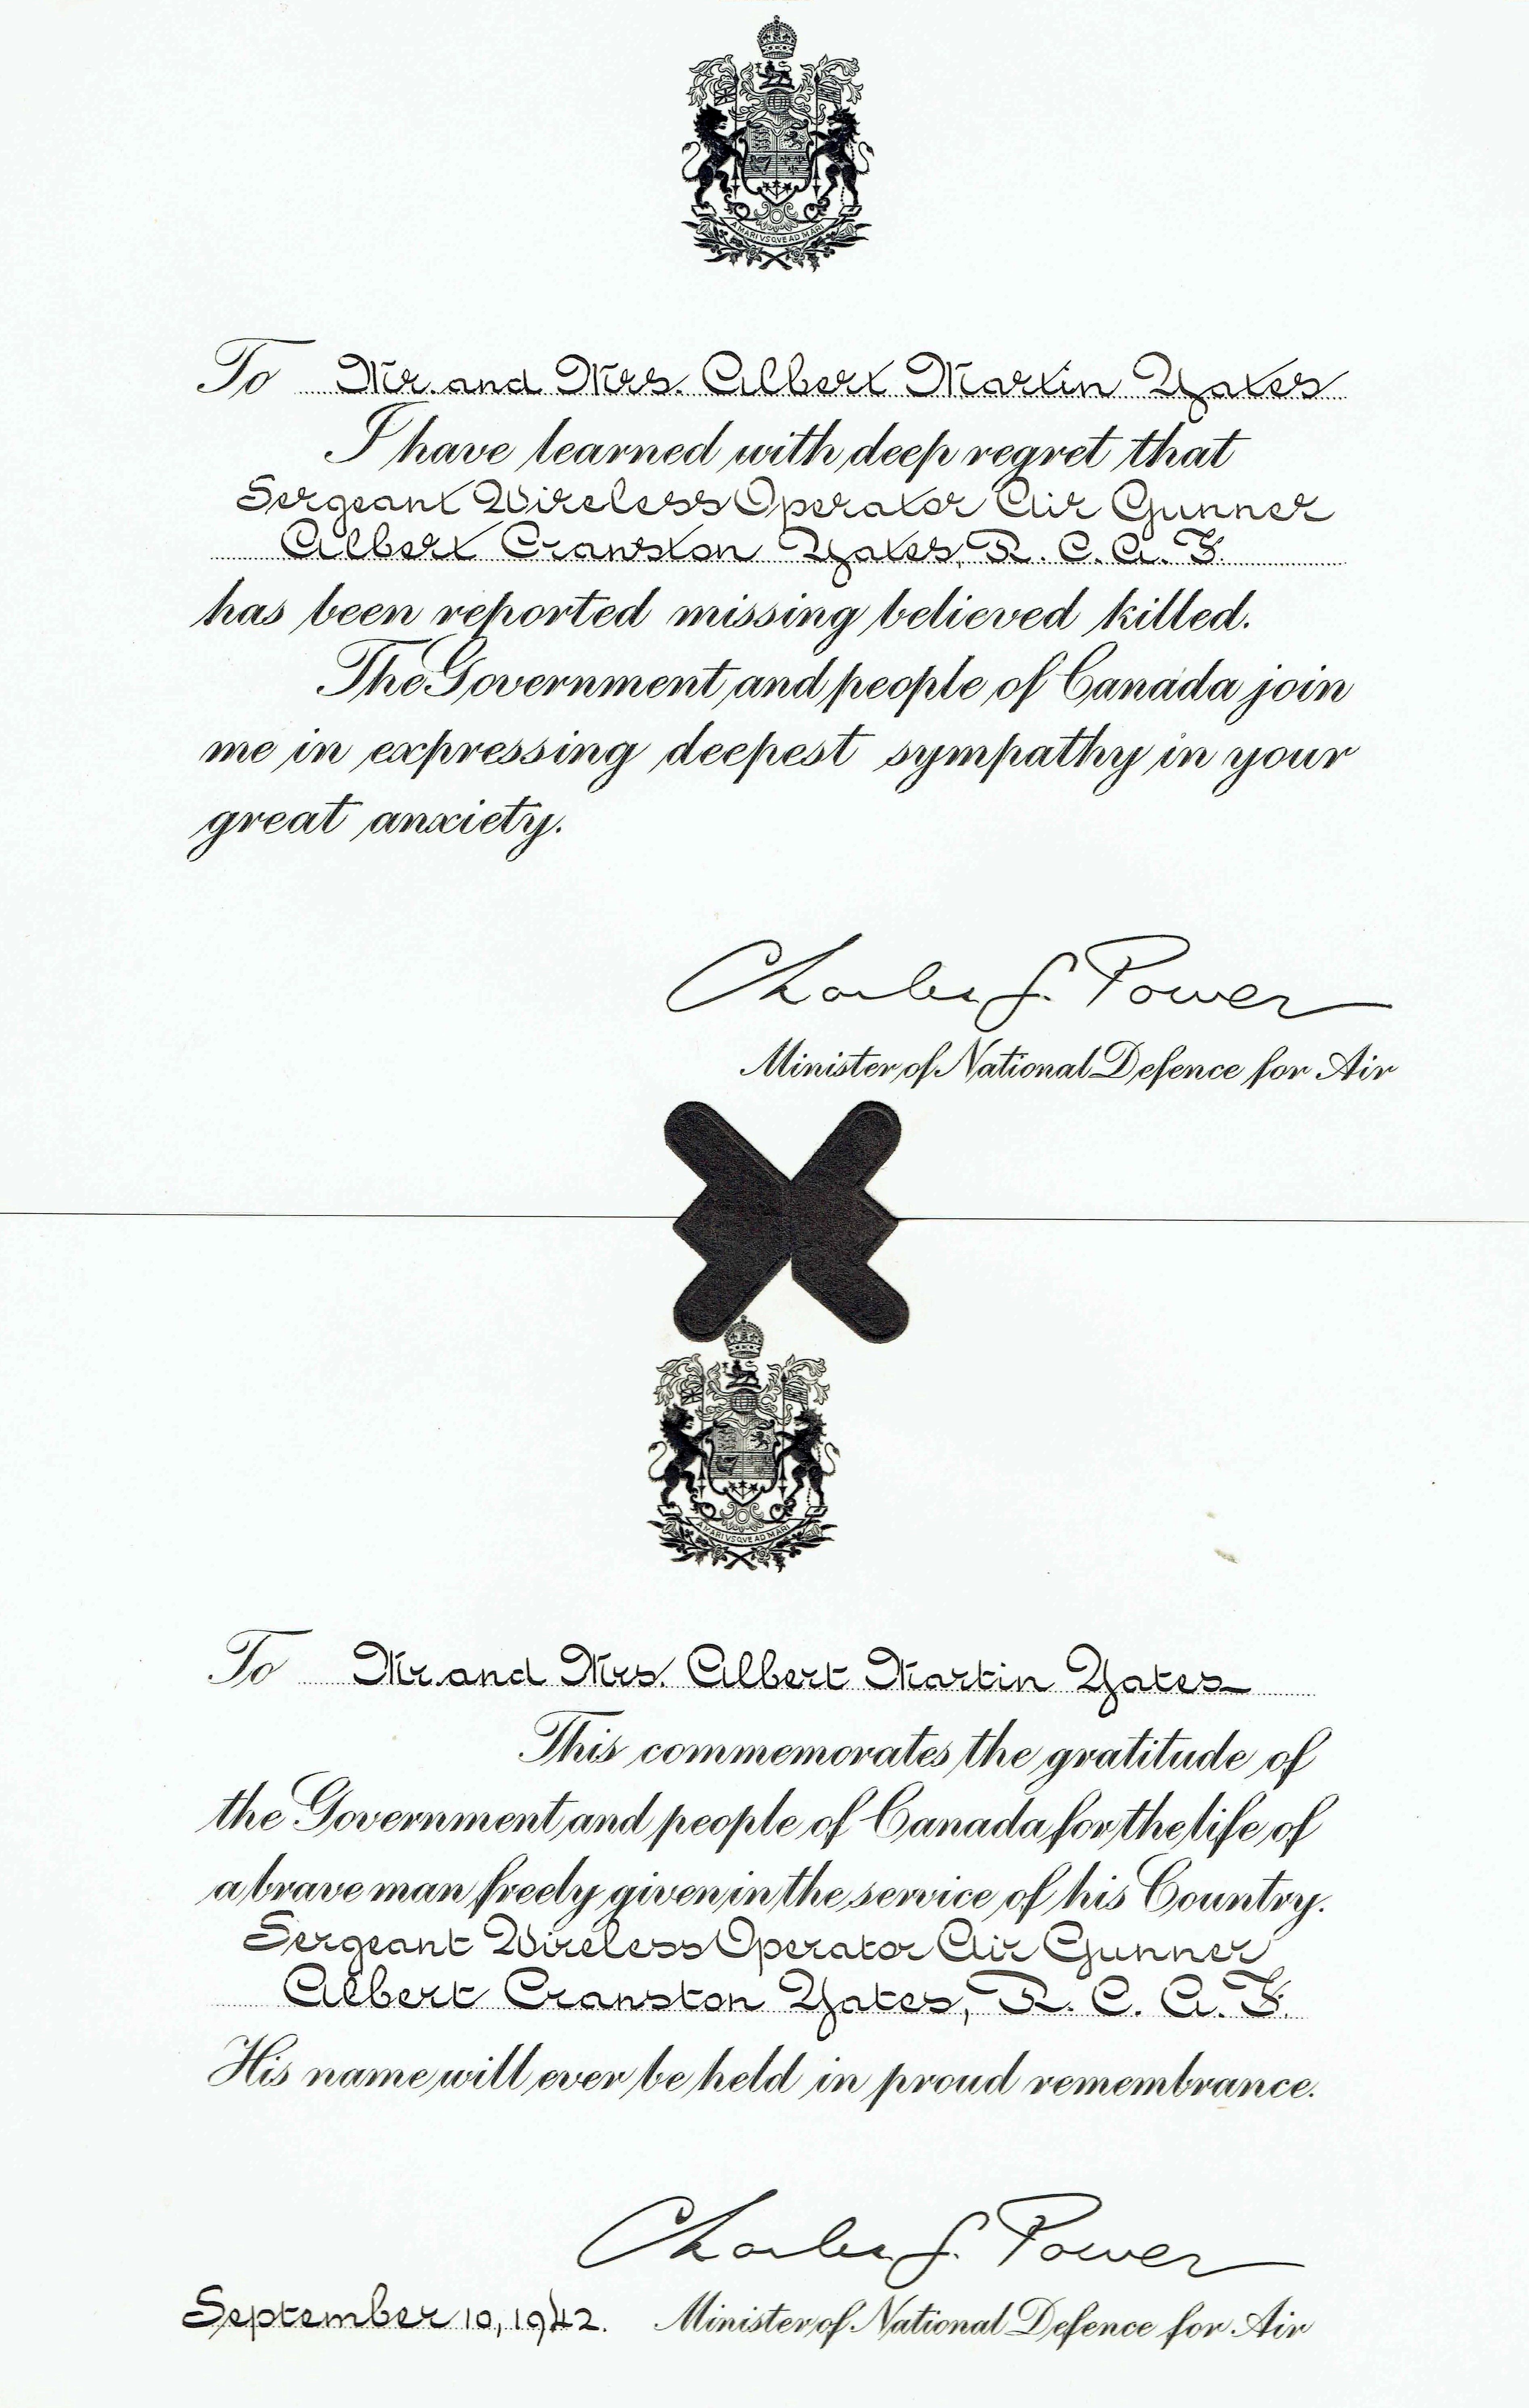 A MARI VSQVE AD MARE
To Mr. and Mrs. Albert Martin Yates
I have learned with deep regret that
Sergeant Wireless Operator Air Gunner
Albert Cranston Yates, R. C. A. F.
has been reported missing believed killed.
The Government and people of Canada join
me in expressing deepest sympathy in your
great anxiety.
Charles G. Power
Minister of National Defence for Air
A MARI VSQVE AD MARE
To Mr. and Mrs. Albert Martin Yates
This commemorates the gratitude of
the Government and people of Canada for the life of
a brave man freely given in the service of his Country.
Sergeant Wireless Operator Air Gunner
Albert Cranston Yates, R. C. A. F.
His name will ever be held in proud remembrance.
Charles G. Power
September 10, 1942. Minister of National Defence for Air